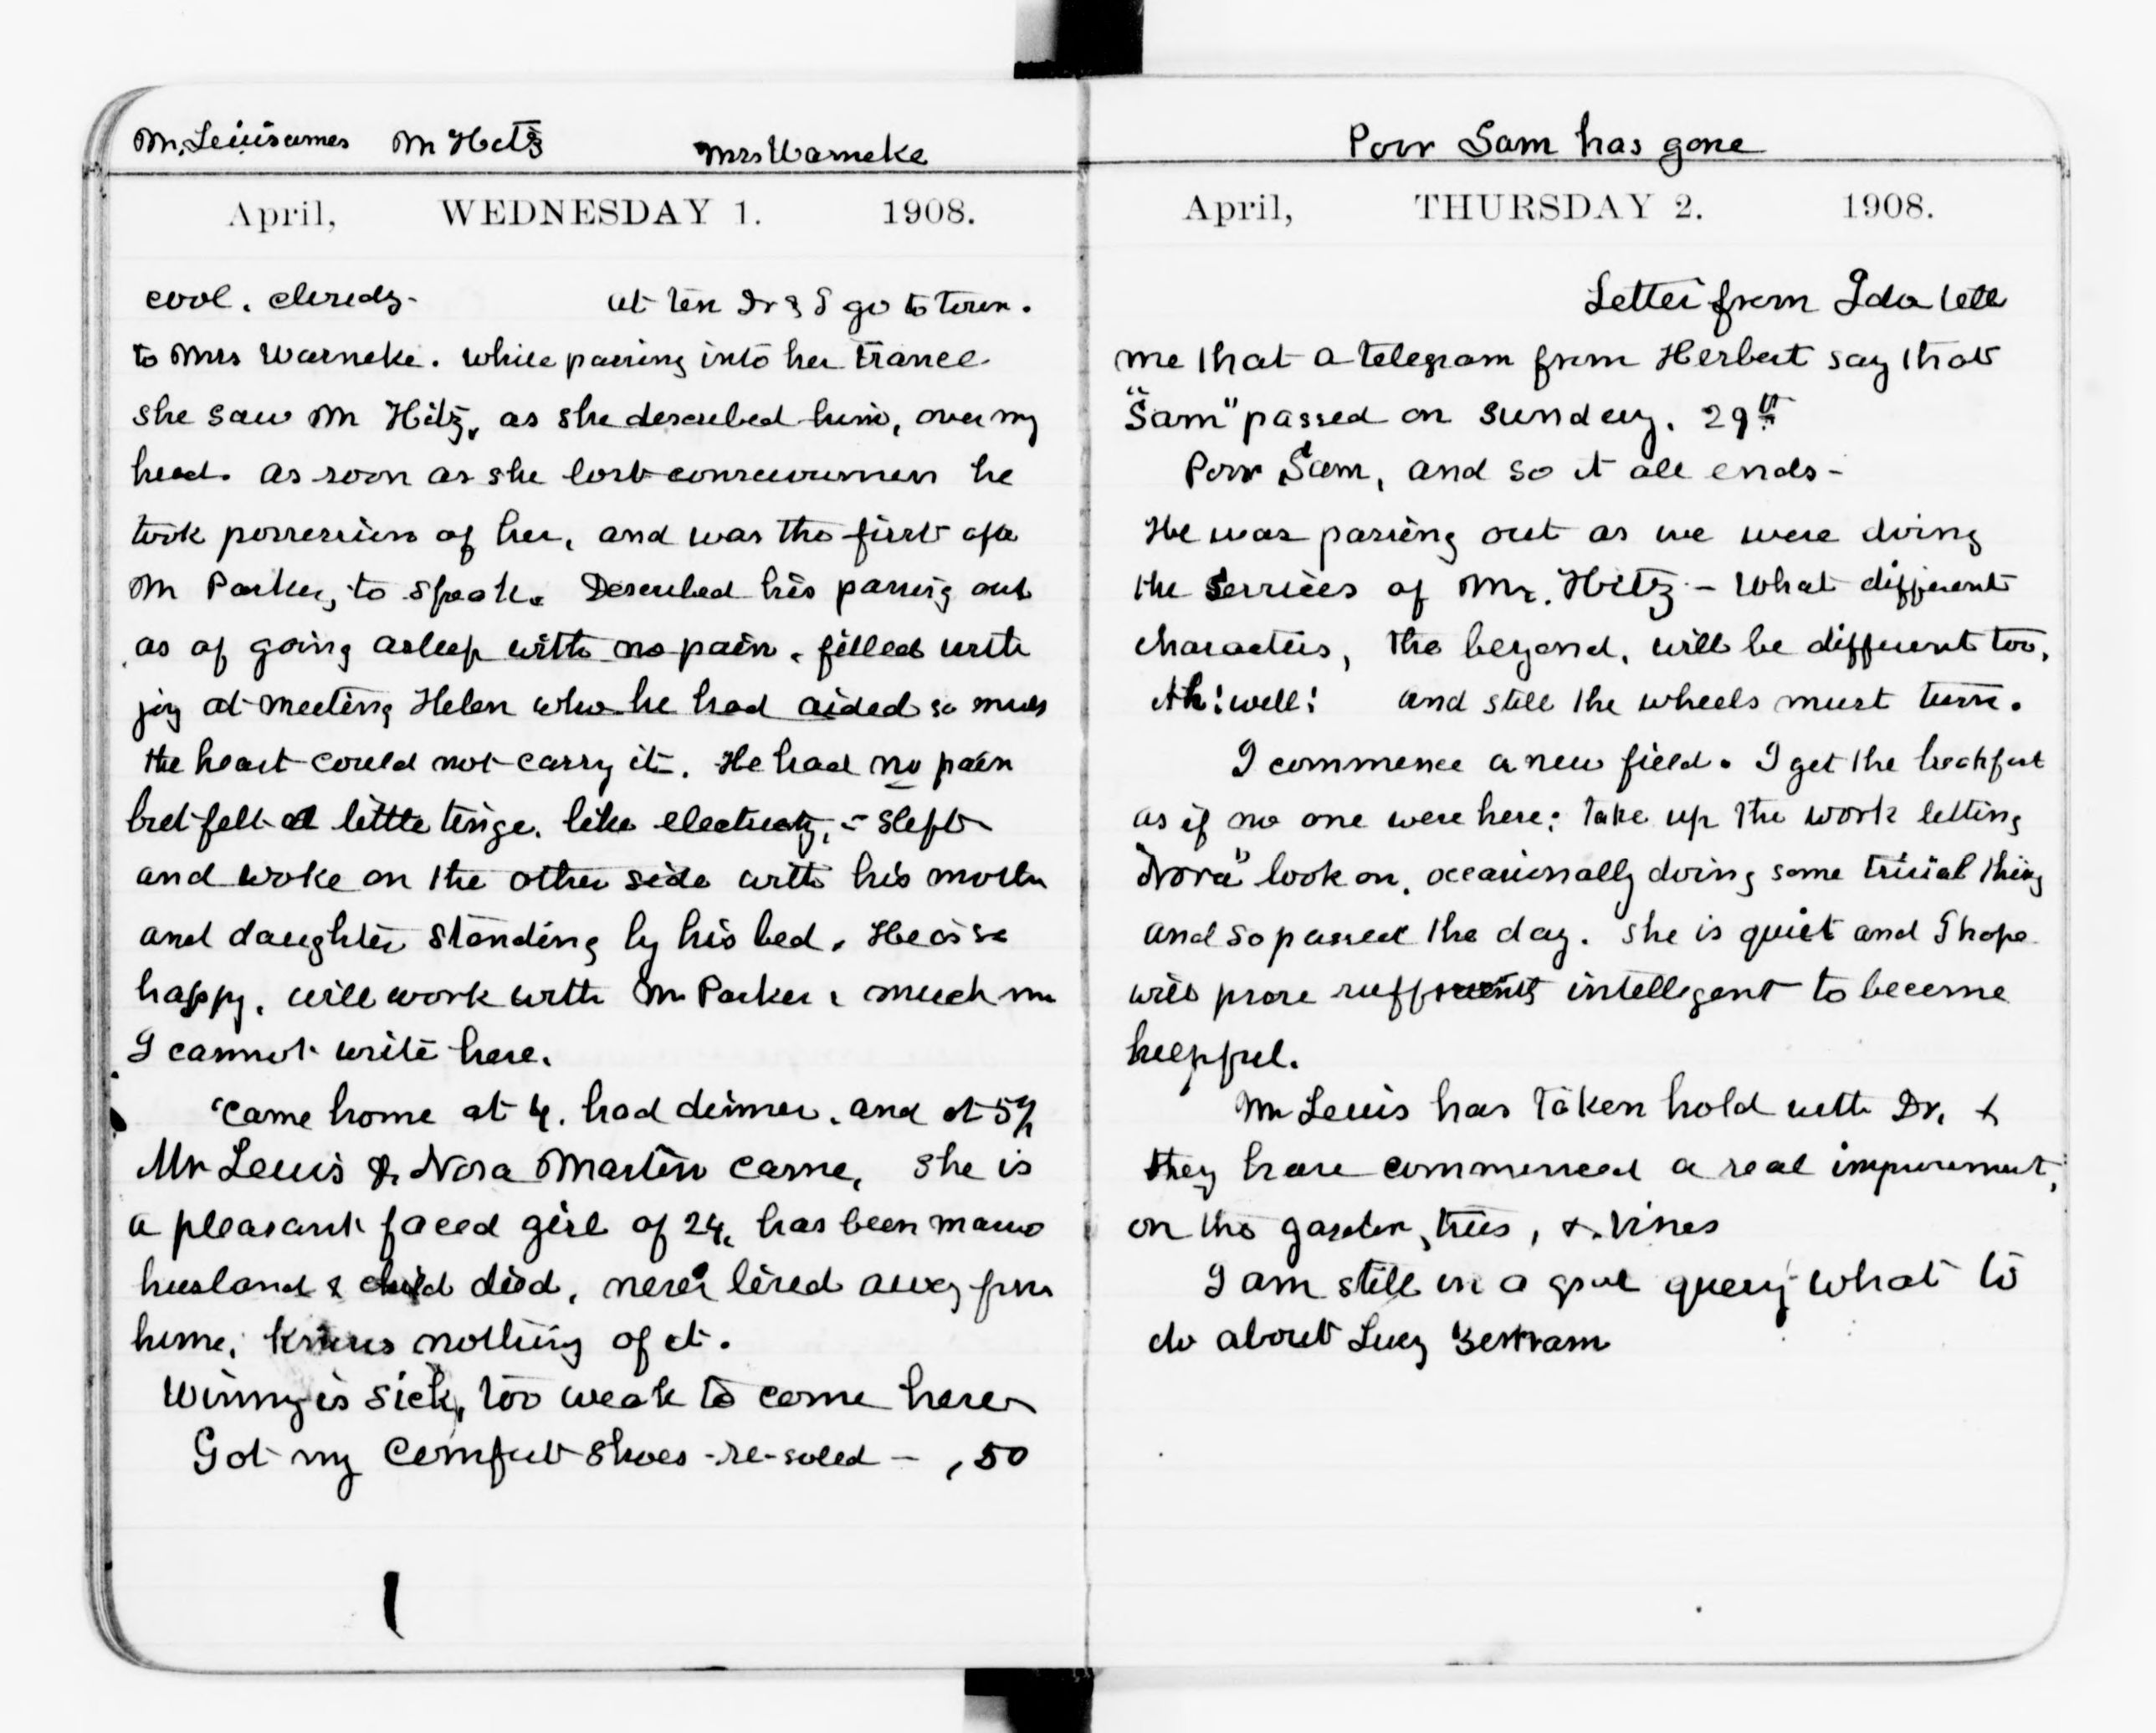 Mr Lewis comes Mr Hitz Mrs Warneke
April, WEDNESDAY 1. 1908.
cool. cloudy- at ten Dr & I go to town.
to Mrs Warneke. while passing into her trance
she saw Mr Hitz, as she described him, over my
head. As soon as she lost consciousness he
took possession of her, and was the first after
Mr Parker, to speak. Described his passing out
as of going asleep with no pain, filled with
joy at meeting Helen who he had aided so much
the heart could not carry it. He had no pain
but felt a little tinge. like electricity, - slept
and woke on the other side with his mother
and daughter standing by his bed. He is so
happy. will work with Mr Parker & much more
I cannot write here.
Came home at 4. had dinner. and at 5½
Mr Lewis & Nora Martin came, she is
a pleasant faced girl of 24, has been married
husband & child died, never lived away from
home, knows nothing of it.
Winny is sick, too weak to come here
Got my Comfort shoes - re-soled - .50
Poor Sam has gone
April, THURSDAY 2. 1908.
Letter from Ida tells
me that a telegram from Herbert say that
"Sam" passed on Sunday. 29th
Poor Sam, and so it all ends-
He was passing out as we were doing
the services of Mr. Hitz - What different
characters, the beyond, will be different too,
Ah! well! and still the wheels must turn.
I commence a new field. I get the breakfast
as if no one were here; take up the work letting
"Nora" look on, occasionally doing some trivial thing
and so passed the day. She is quiet and I hope
will prove sufficiently intelligent to become
helpful.
Mr Lewis has taken hold with Dr. &
they have commenced a real improvement,
on the garden, trees, & vines
I am still in a great query what to
do about Lucy Bertram